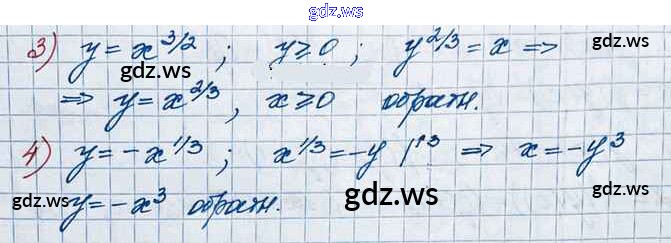 gdz.ws
3) y = x^3/2 ; y ⩾ 0 ; y^2/3 = x =>
gdz.ws gdz.ws
=> y = x^2/3, x ⩾ 0 обратн.
4) y = -x^1/3 ; x^1/3 = -y |^3 => x = -y^3
gdz.ws gdz.ws
y = -x^3 обратн.
gdz.ws